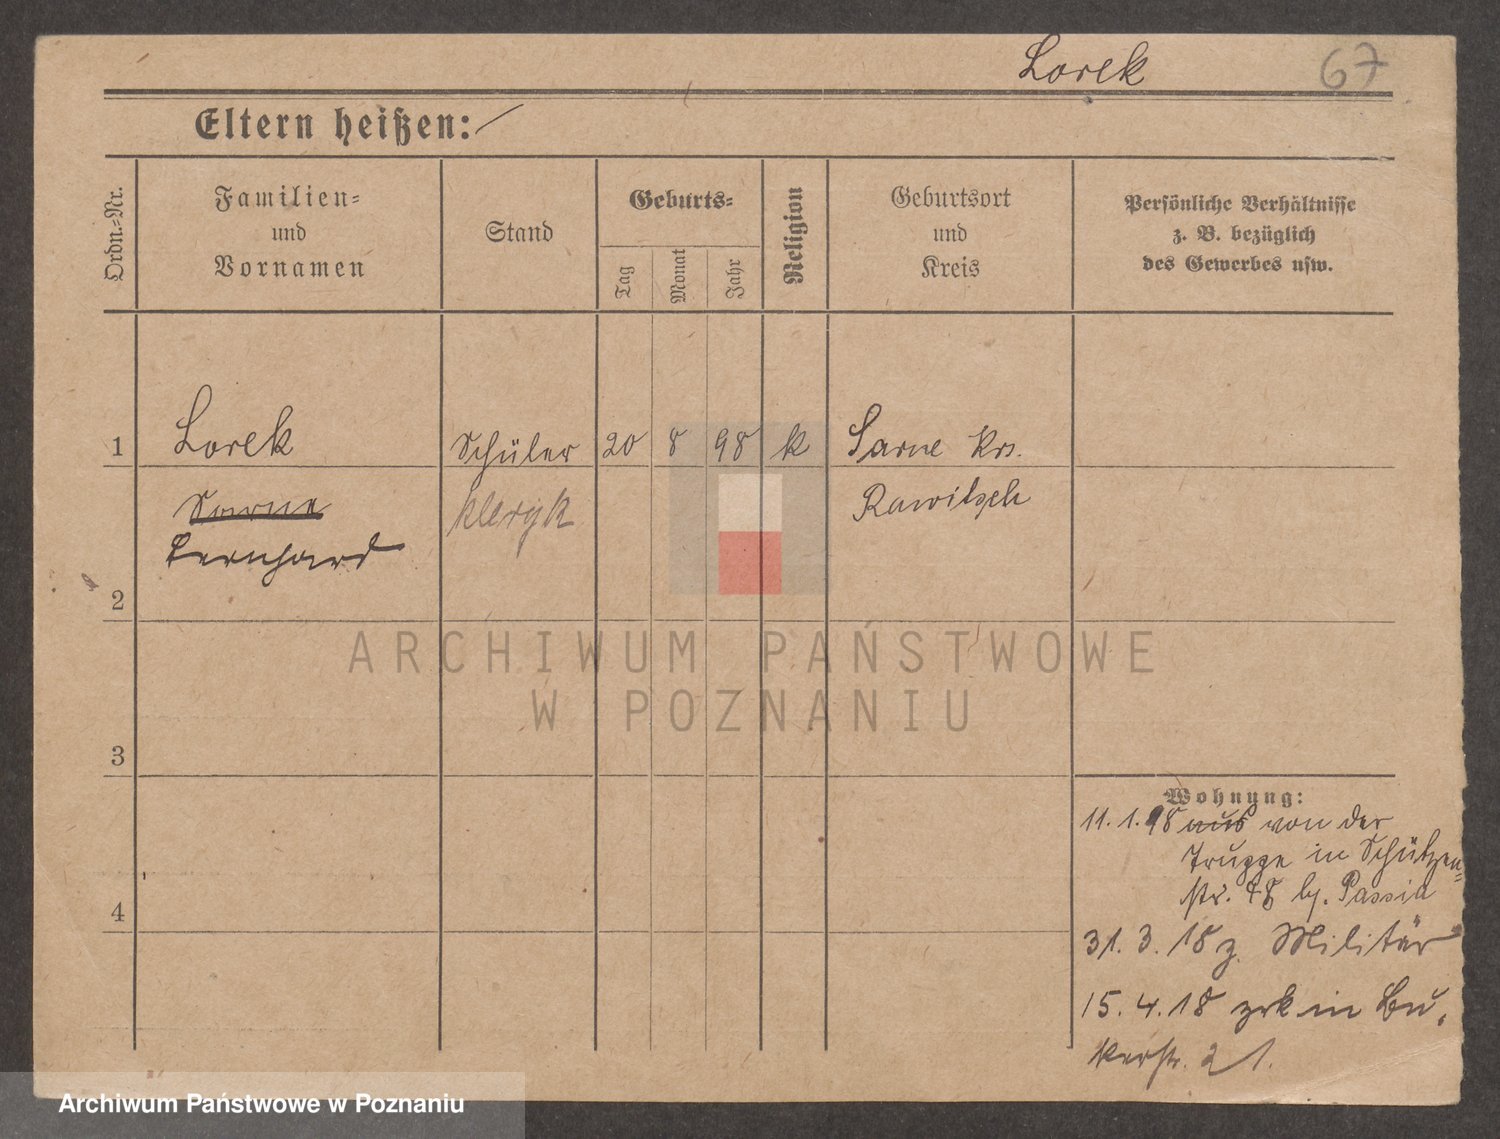 Lorek 67
Eltern heißen:
Ordn.-Nr.
Familien-
und
Vornamen
Stand
Geburts-
Tag
Monat
Jahr
Religion
Geburtsort
und
Kreis
Persönliche Verhältnisse
z. B. bezüglich
des Gewerbes usw.
1 Lorek Schüler 20 8 98 k Sarne Krs.
Sarne kleryk Rawitsch
Bernhard
2
3
4
Wohnung:
11. 1. 98 aus von der
Truppe in Schützen-
str. 48 b/.
31. 3. 18 z. Militär
15. 4. 18 zrk in Bu,
kerstr. 21.
ARCHIWUM PAŃSTWOWE
W POZNANIU
Archiwum Państwowe w Poznaniu